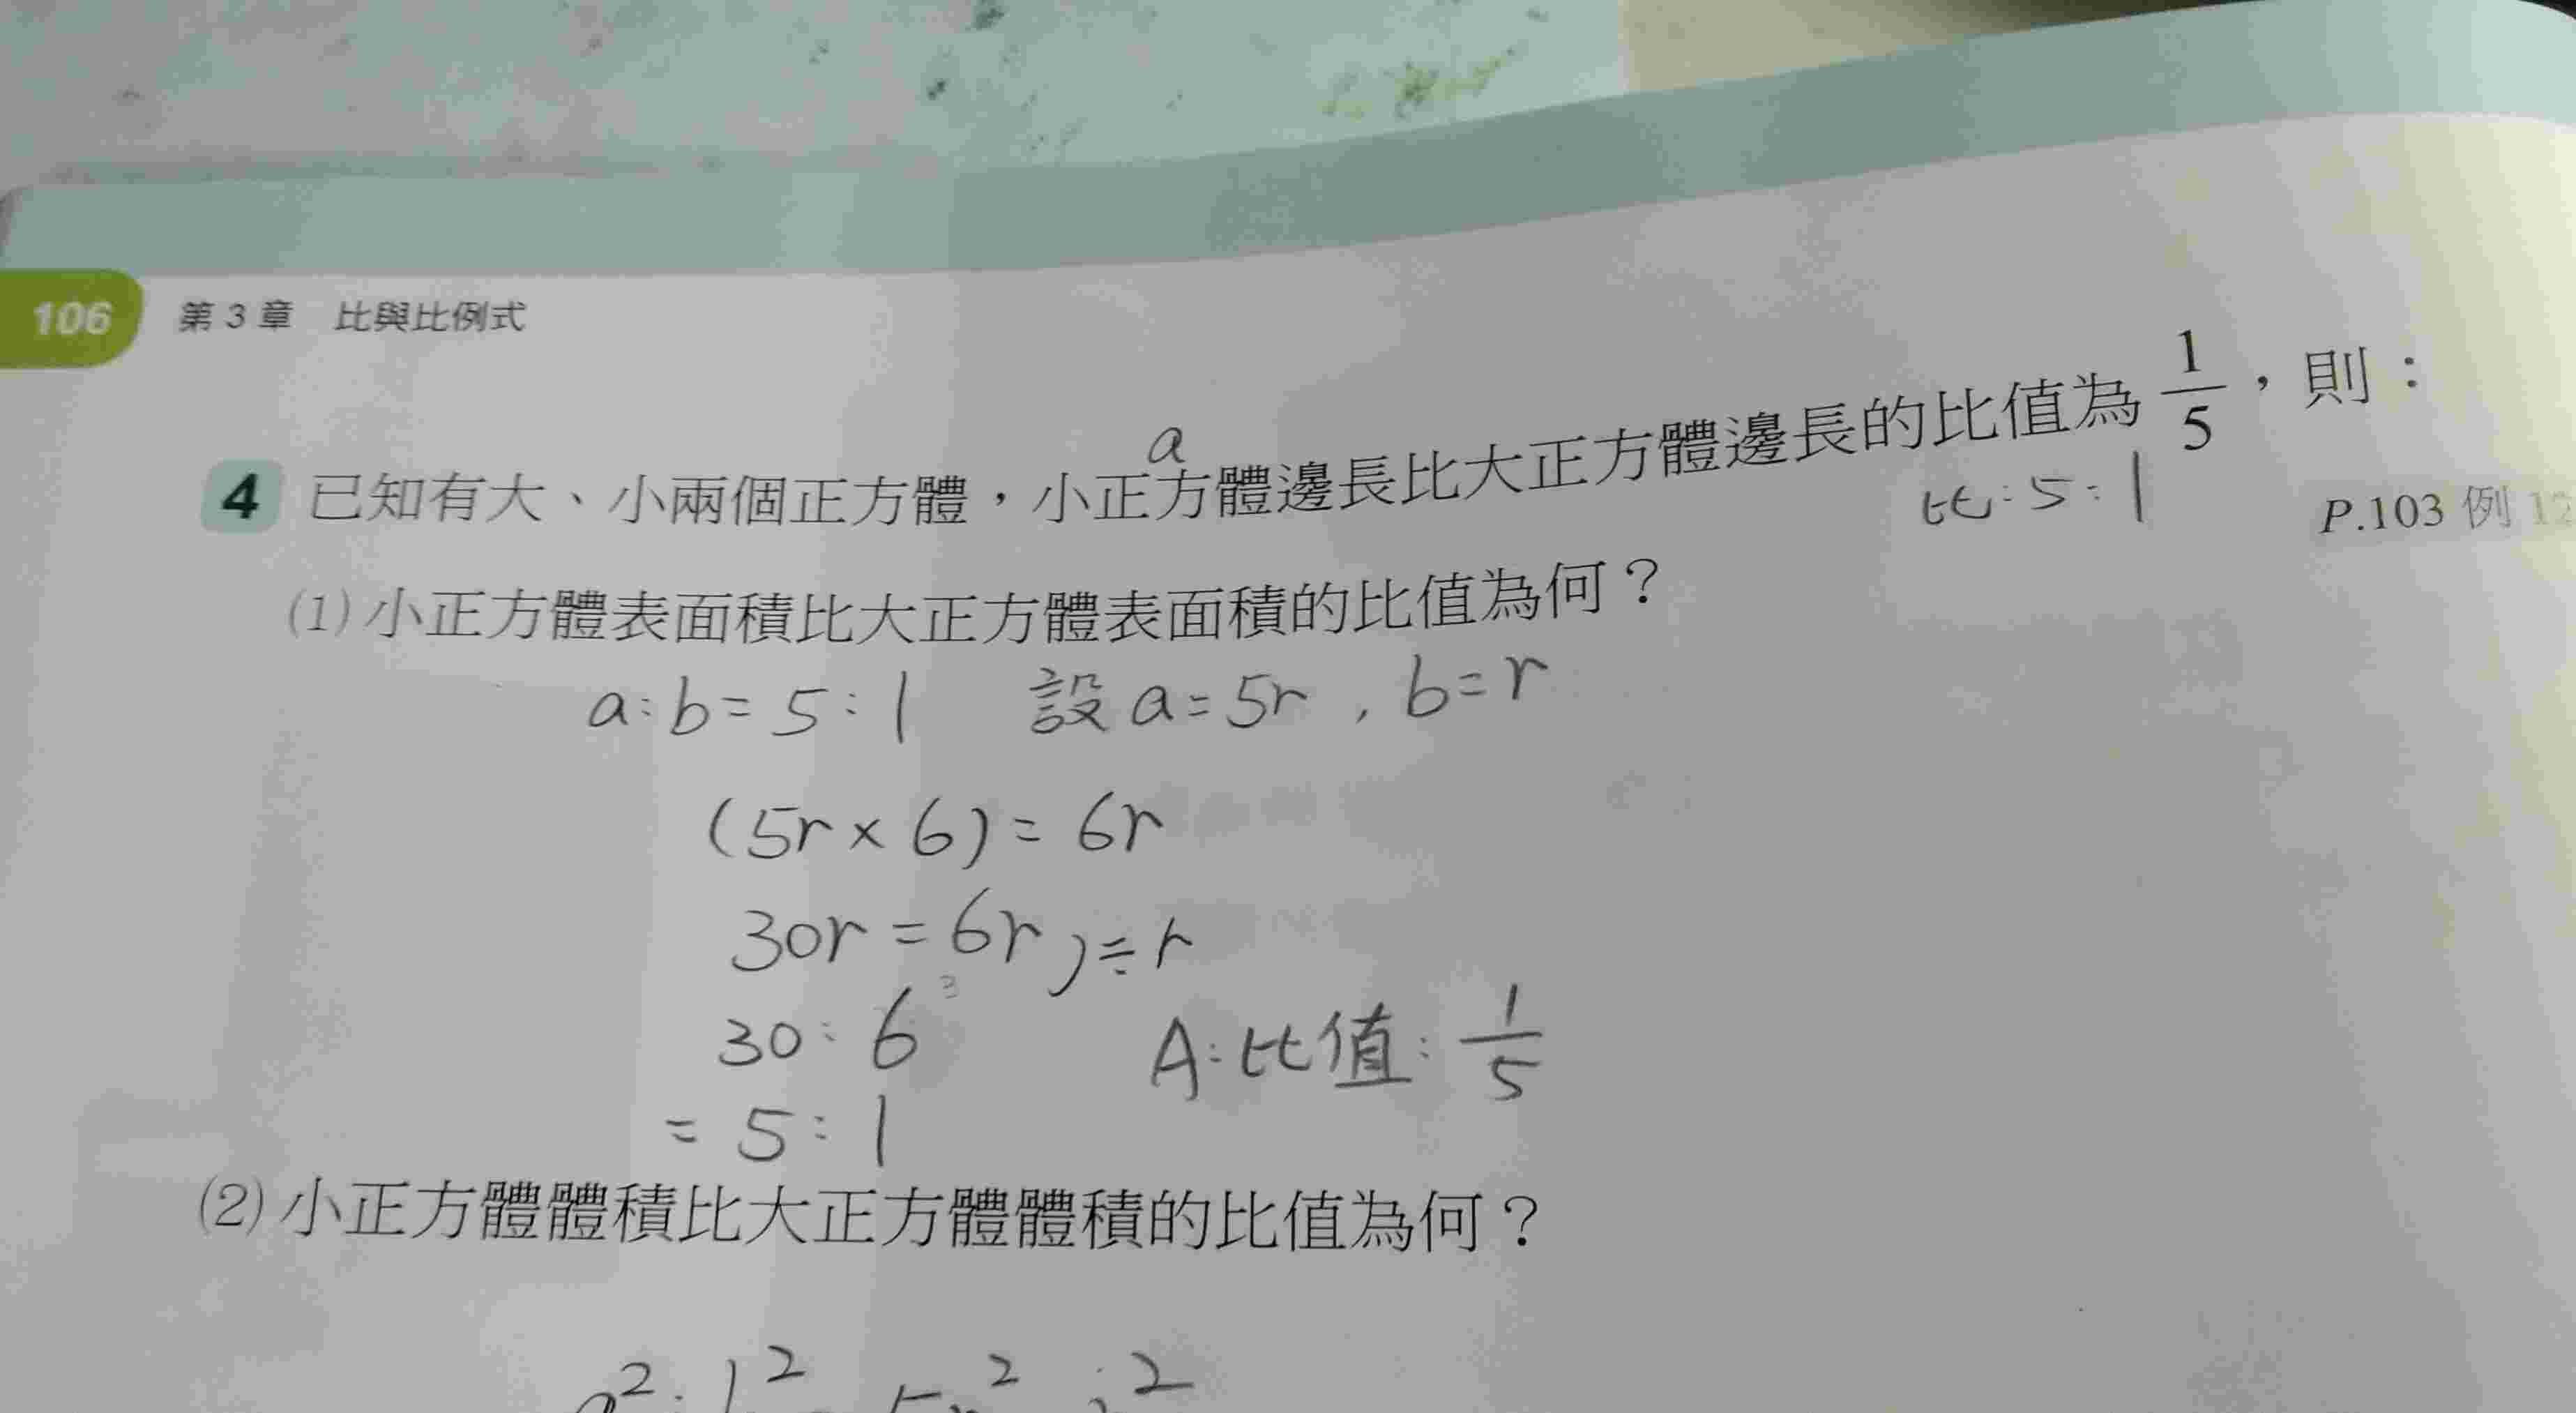 106 第3章 比與比例式
a
4 已知有大、小兩個正方體，小正方體邊長比大正方體邊長的比值為 1/5，則：
比：5：1
P.103 例 12
(1) 小正方體表面積比大正方體表面積的比值為何？
a：b = 5：1 設 a = 5r , b = r
(5r × 6) = 6r
30r = 6r ) ÷ r
30：6
A：比值：1/5
= 5：1
(2) 小正方體體積比大正方體體積的比值為何？